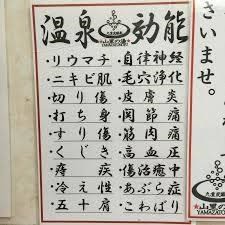 温泉効能
山里の湯
YAMAZATO
・リウマチ ・自律神経
・ニキビ肌 ・毛穴浄化
・切り傷 ・皮膚炎
・打ち身 ・関節痛
・すり傷 ・筋肉痛
・くじき ・高血圧
・痔疾 ・傷治癒中
・冷え性 ・あぶら症
・五十肩 ・こわばり
さいませ。
山里
YAMAZATO